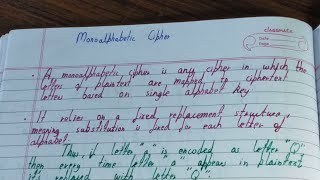 Monoalphabetic Cipher
classmate
Date
Page
• A monoalphabetic cipher is any cipher in which the
letters of plaintext are mapped to ciphertext
letters based on single alphabet key
• It relies on a fixed replacement structure,
meaning substitution is fixed for each letter of
alphabet
Thus, if letter "a" is encoded as letter "Q"
then every time letter "a" appear in plaintext
it's replaced with letter "Q"